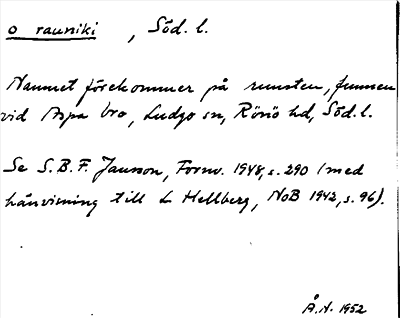 o rauniki , Söd. l.
Namnet förekommer på runsten, funnen
vid Aspa bro, Ludgo sn, Rönö hd, Söd. l.
Se S.B.F. Jansson, Fornv. 1948, s. 290 (med
hänvisning till L Hellberg, NoB 1942, s. 96).
Å.H. 1952